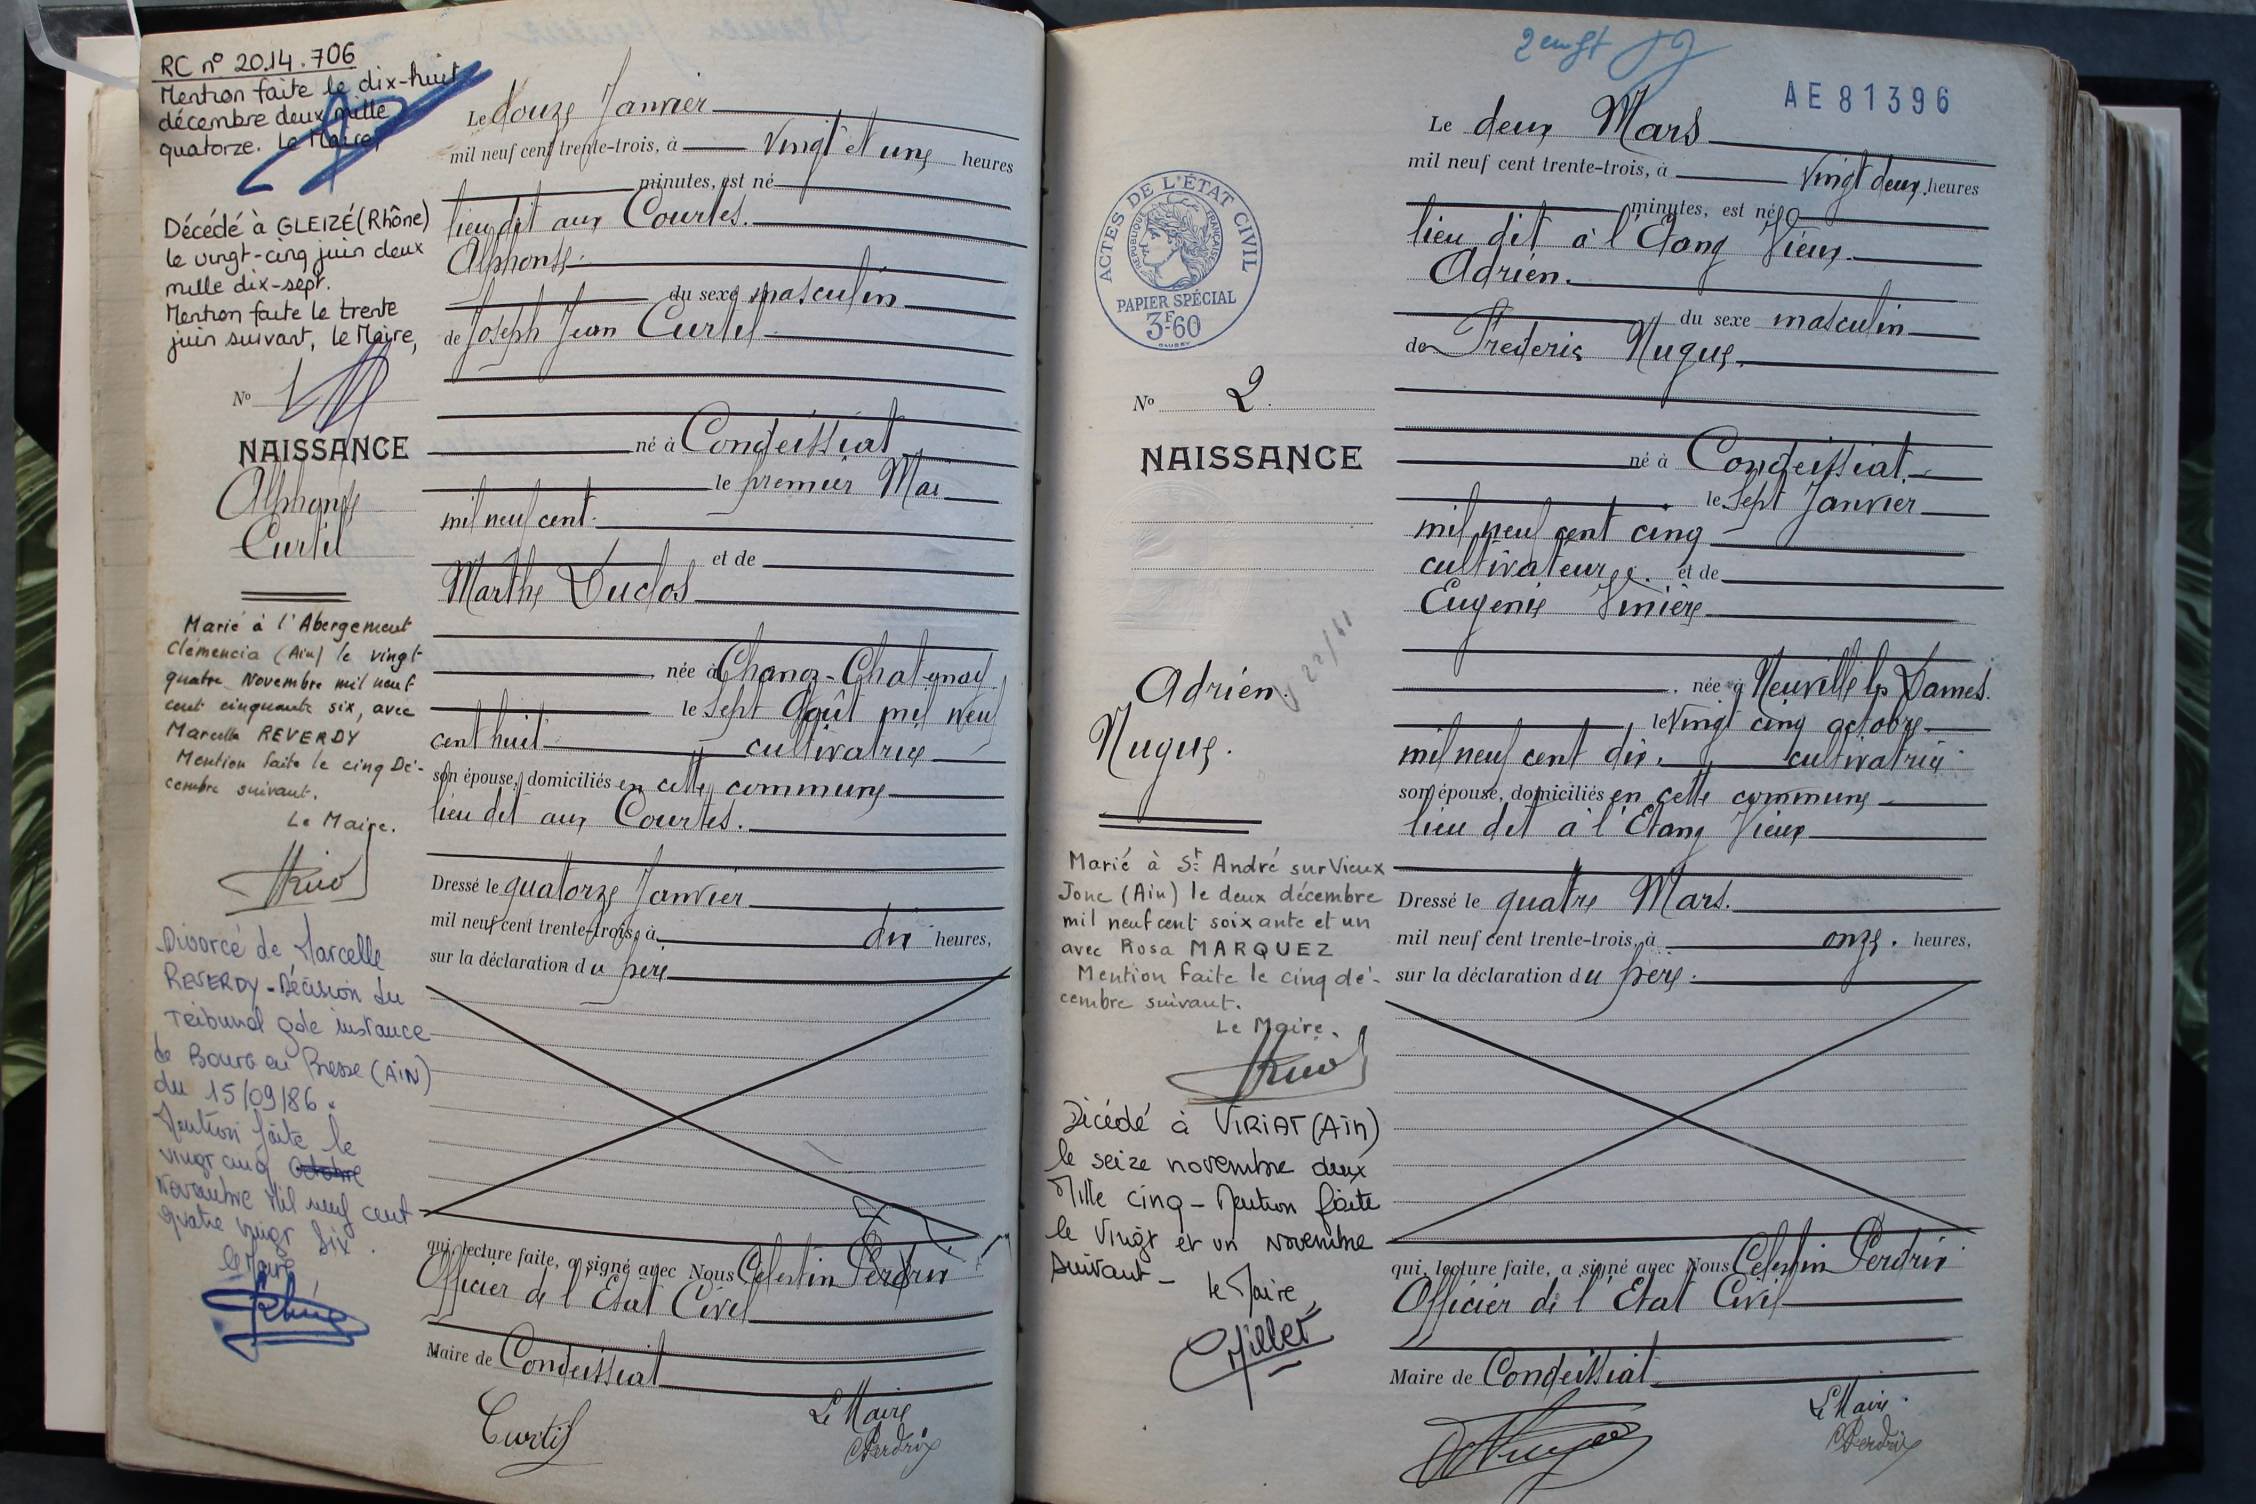 RC n° 2014.706
Mention faite le dix-huit
décembre deux mille
quatorze. Le Maire,
Décédé à GLEIZÉ (Rhône)
le vingt-cinq juin deux
mille dix-sept.
Mention faite le trente
juin suivant, le Maire,
No 1
NAISSANCE
Alphonse
Curtil
Marié à l'Abergement
Clémencia (Ain) le vingt
quatre Novembre mil neuf
cent cinquante six, avec
Marcelle REVERDY
Mention faite le cinq Dé-
cembre suivant.
Le Maire.
Divorcé de Marcelle
REVERDY - Décision du
Tribunal gde instance
de Bourg en Bresse (AIN)
du 15/09/86.
Mention faite le
vingt cinq octobre
Novembre Mil neuf cent
quatre vingt six.
le Maire
Le douze Janvier
mil neuf cent trente-trois, à vingt et une heures
minutes, est né
lieu dit aux Courtes.
Alphonse.
du sexe masculin
de Joseph Jean Curtil
né à Condeissiat
le premier Mai
mil neuf cent.
et de
Marthe Duclos
née à Chanoz-Chatenay
le sept Août mil neuf
cent huit cultivatrice
son épouse, domiciliés en cette commune
lieu dit aux Courtes.
Dressé le quatorze Janvier
mil neuf cent trente-trois, à dix heures,
sur la déclaration du père
qui, lecture faite, a signé avec Nous Célestin Perdrix
Officier de l'Etat Civil
Maire de Condeissiat
Curtil
Le Maire
C Perdrix
2 AE81396
ACTES DE L'ÉTAT CIVIL
RÉPUBLIQUE FRANÇAISE
PAPIER SPÉCIAL
3F60
No 2.
NAISSANCE
Adrien.
Nugue.
Marié à St André sur Vieux
Jonc (Ain) le deux décembre
mil neuf cent soixante et un
avec Rosa MARQUEZ
Mention faite le cinq dé-
cembre suivant.
Le Maire.
Décédé à VIRIAT (Ain)
le seize novembre deux
Mille cinq - Mention faite
le vingt et un novembre
Suivant -
le Maire,
CMillet
Le deux Mars
mil neuf cent trente-trois, à vingt deux heures
minutes, est né
lieu dit à l'Etang Vieux
Adrien.
du sexe masculin
de Frederic Nugue
né à Condeissiat.
le sept Janvier
mil neuf cent cinq
cultivateur et de
Eugenie Vinière
née à Neuville les Dames.
le vingt cinq octobre
mil neuf cent dix, cultivatrice
son épouse, domiciliés en cette commune
lieu dit à l'Etang Vieux
Dressé le quatre Mars.
mil neuf cent trente-trois, à onze. heures,
sur la déclaration du père.
qui, lecture faite, a signé avec Nous Célestin Perdrix
Officier de l'Etat Civil
Maire de Condeissiat
Le Maire.
C Perdrix